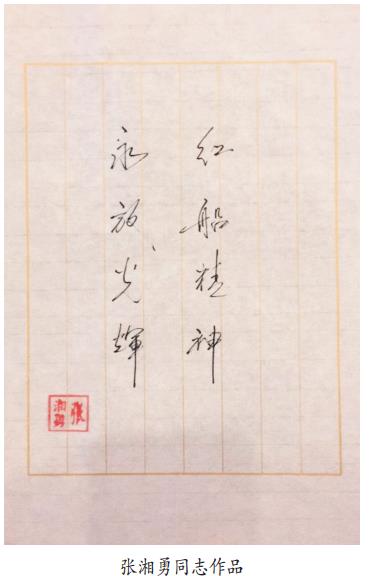 红船精神
永放光辉
张湘勇
张湘勇同志作品